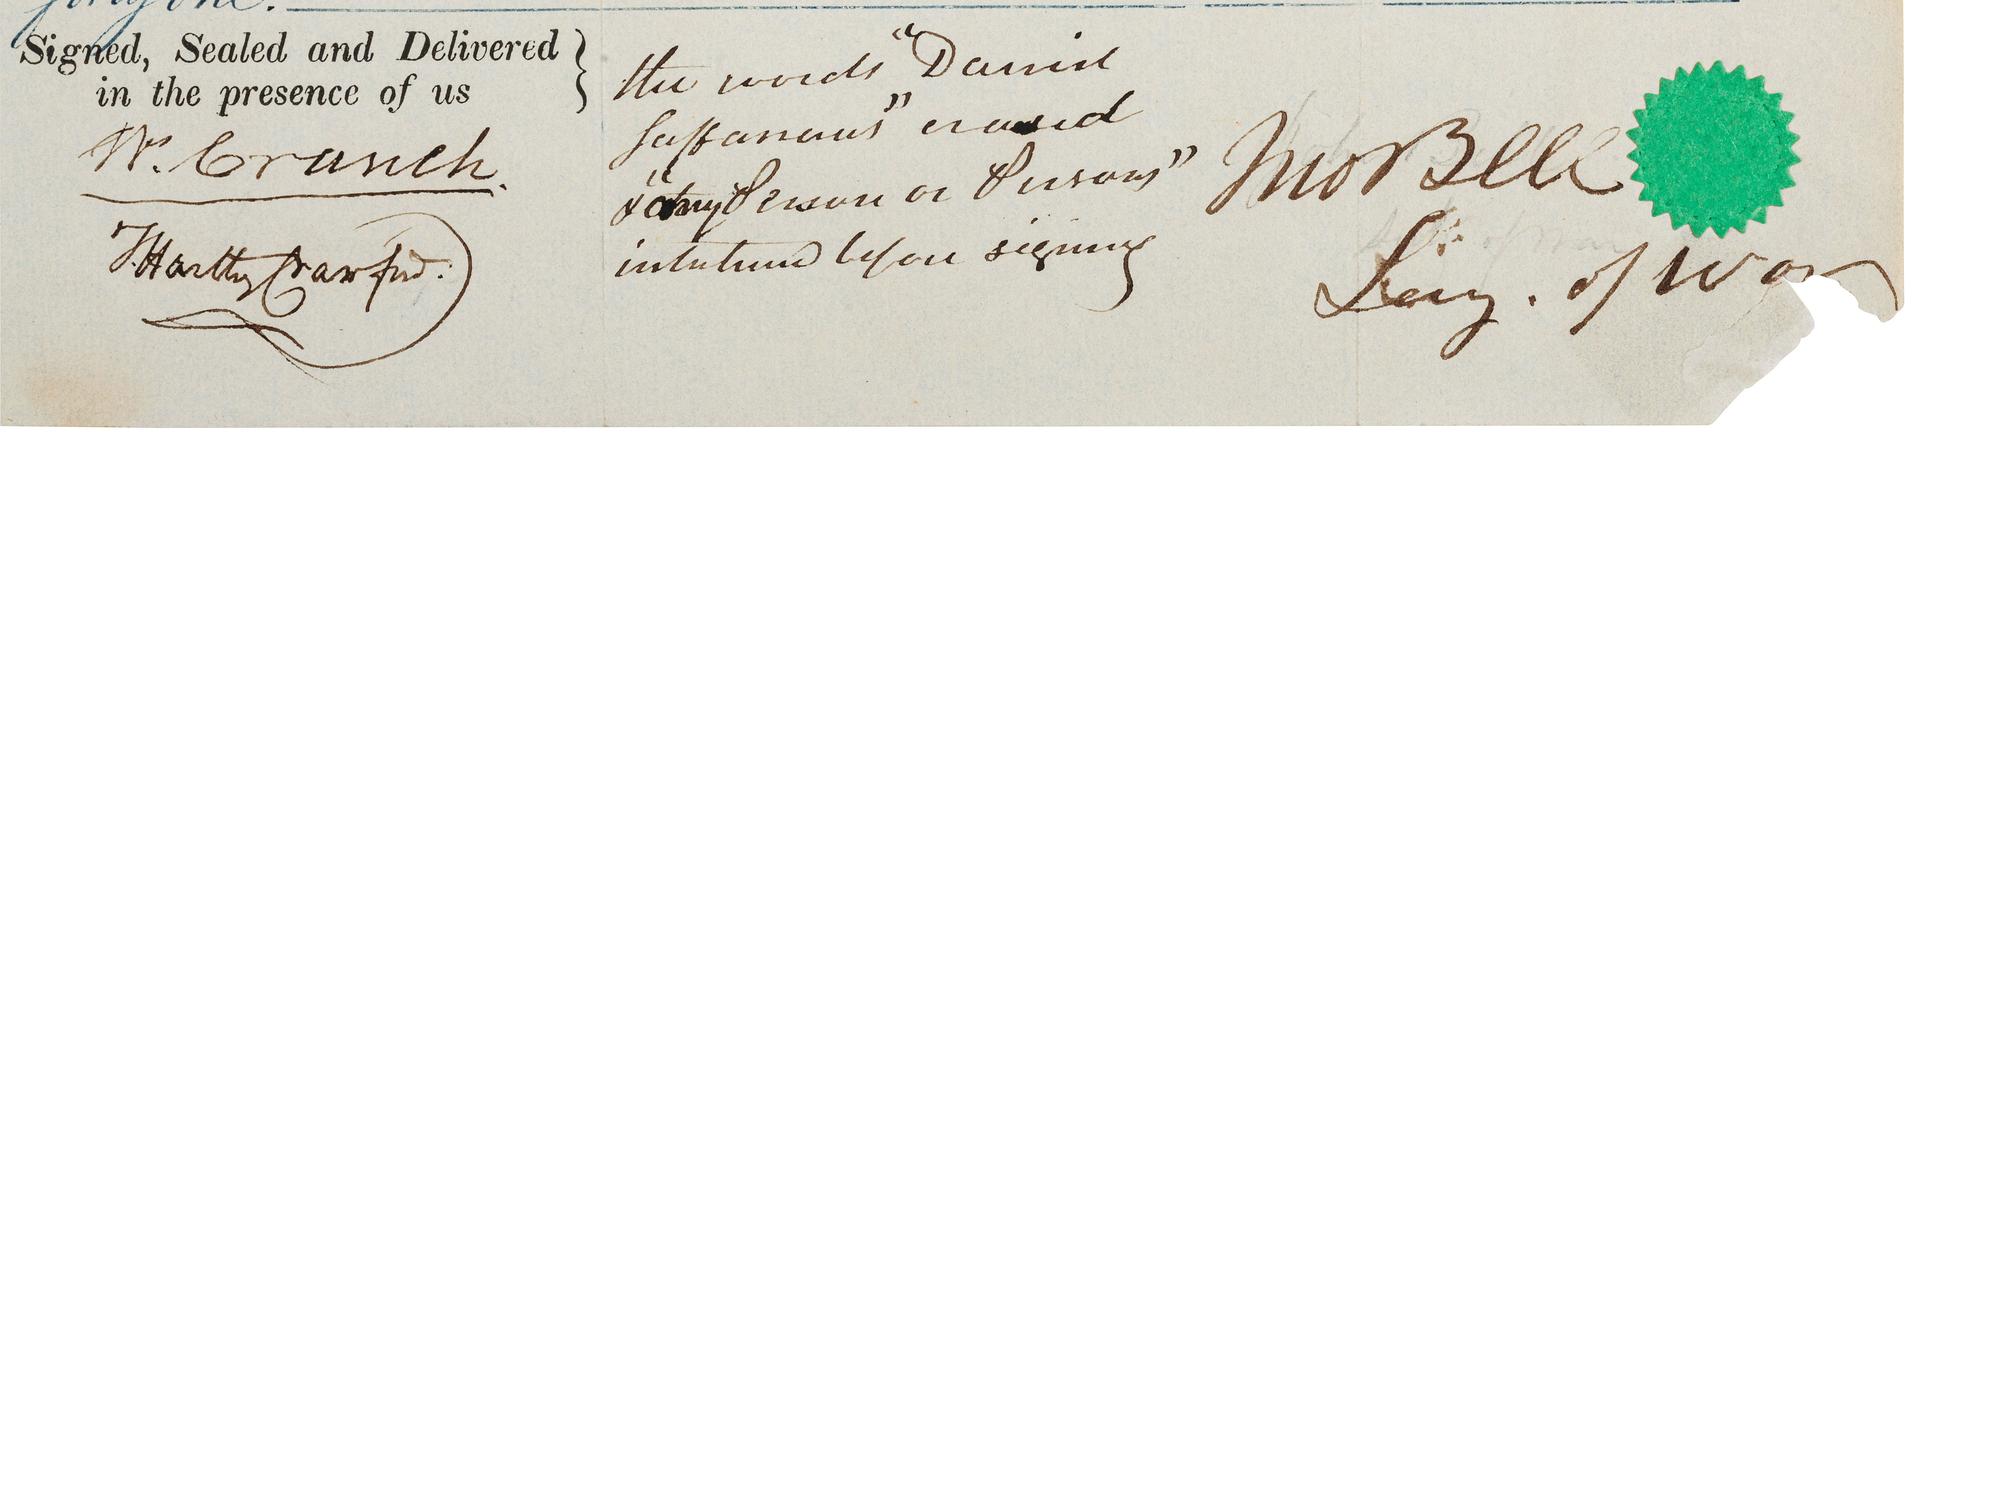 forty one.
Signed, Sealed and Delivered
in the presence of us
W. Cranch.
T. Hartley Crawford.
the words "Daniel
Saffarrans" erased
& "any Person or Persons"
interlined before signing
Jno Bell
Secy. of War